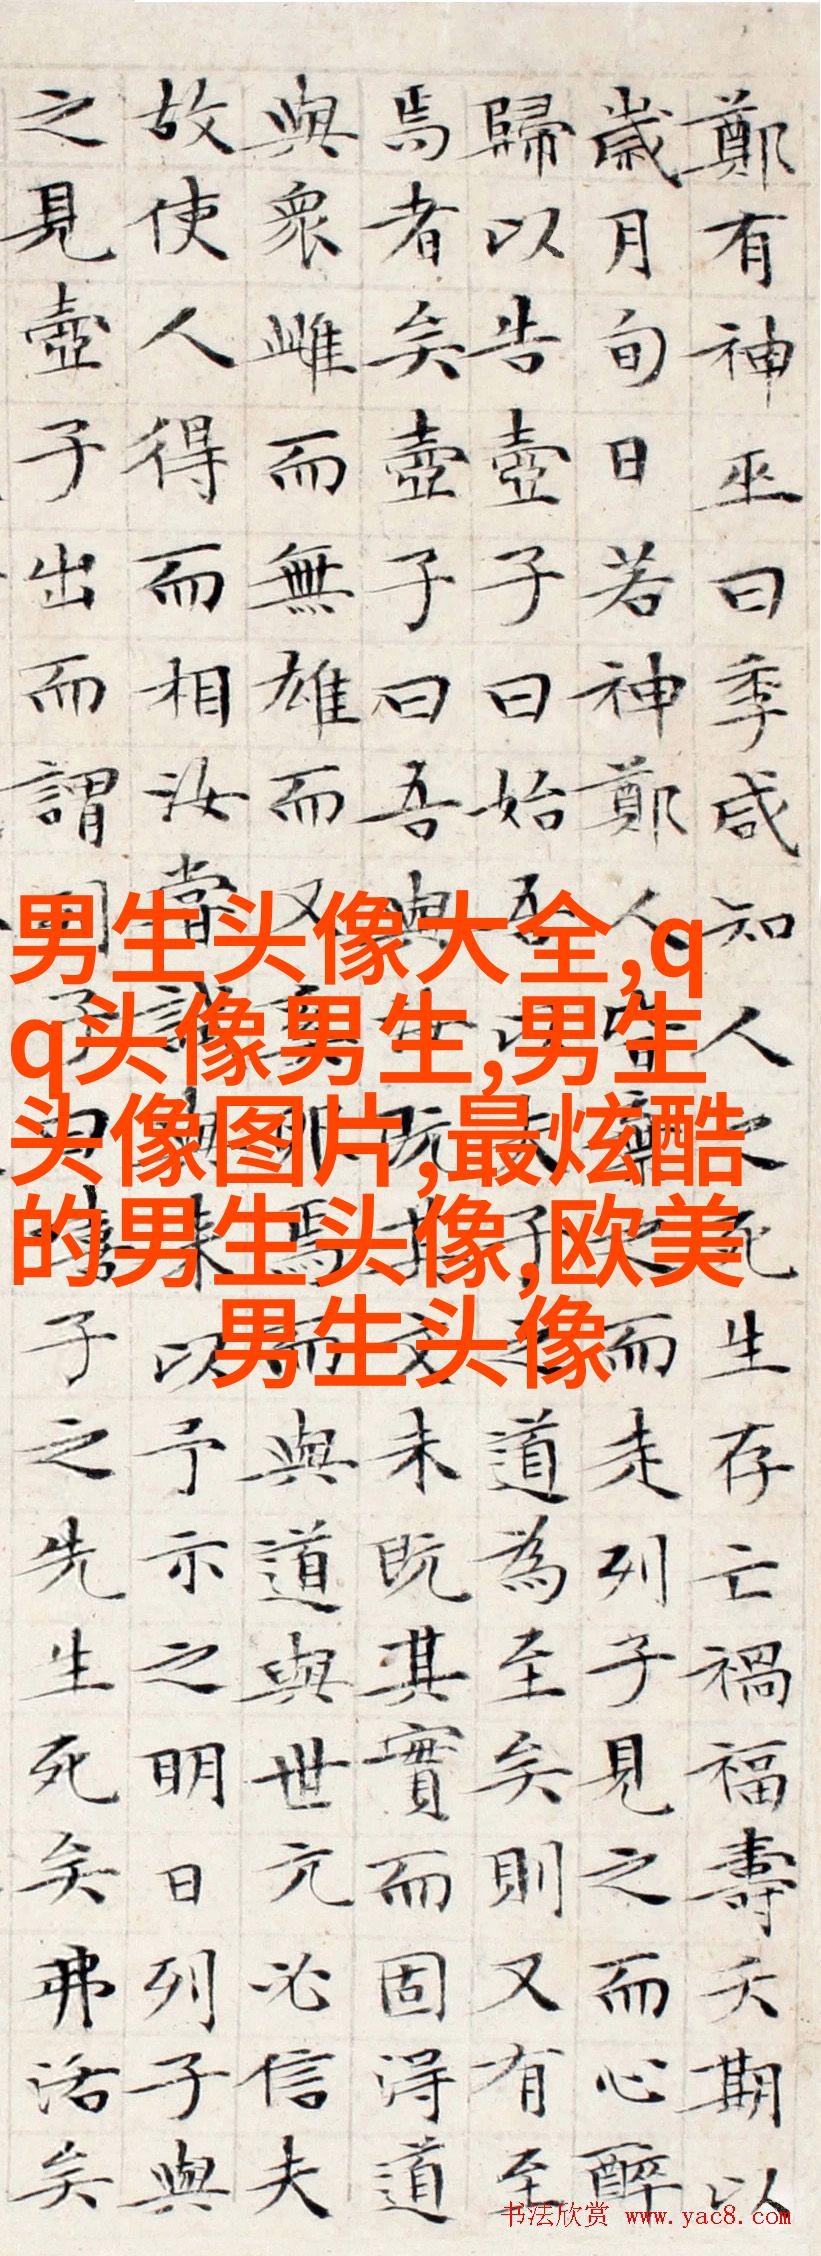 鄭有神巫曰季咸知人之死生存亡禍福壽夭期以
歲月旬日若神鄭人皆之而走列子見之而心醉
歸以告壺子曰始吾以夫子之道為至矣則又有至
焉者矣壺子曰吾與女既其文未既其實而固得道
與衆雌而無雄而又奚卵焉而與道與世亢必信夫
故使人得而相汝嘗試與來以予示之明日列子與
之見壺子出而謂列子曰嘻子之先生死矣弗活矣
男生头像大全,q
q头像男生,男生
头像图片,最炫酷
的男生头像,欧美
男生头像
书法欣赏 www.yac8.com